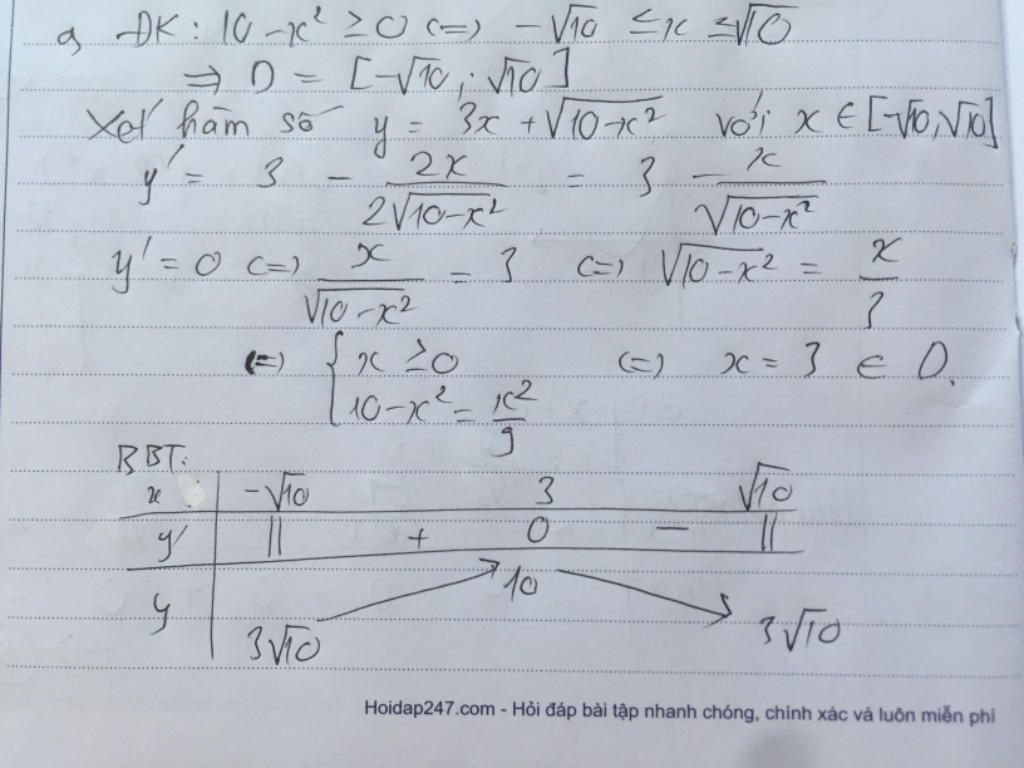 a, ĐK: 10 - x² ≥ 0 (=) -√10 ≤ x ≤ √10
=> D = [-√10; √10]
Xét hàm số y = 3x + √(10-x²) với x ∈ [-√10, √10]
y' = 3 - 2x/(2√(10-x²)) = 3 - x/√(10-x²)
y' = 0 (=) x/√(10-x²) = 3 (=) √(10-x²) = x/3
(=) { x ≥ 0 (=) x = 3 ∈ D.
10 - x² = x²/9
BBT:
x -√10 3 √10
y' || + 0 - ||
y 3√10 10 3√10
Hoidap247.com - Hỏi đáp bài tập nhanh chóng, chính xác và luôn miễn phí